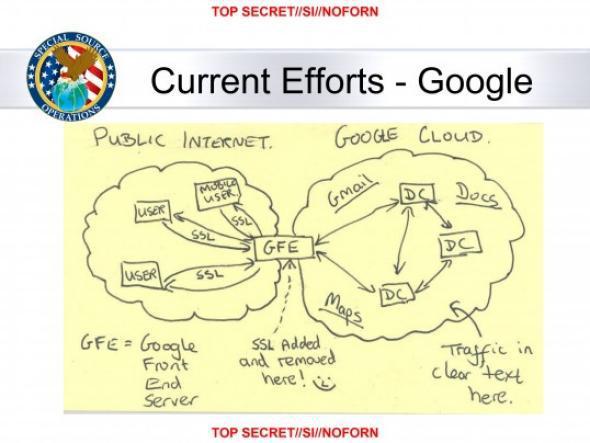 TOP SECRET//SI//NOFORN
SPECIAL SOURCE
OPERATIONS
Current Efforts - Google
PUBLIC INTERNET.
GOOGLE CLOUD.
MOBILE
USER
USER
SSL
SSL
USER
SSL
GFE
Gmail
DC
Docs
DC
DC
Maps
GFE = Google
Front
End
Server
SSL Added
and removed
here!
Traffic in
clear text
here.
TOP SECRET//SI//NOFORN